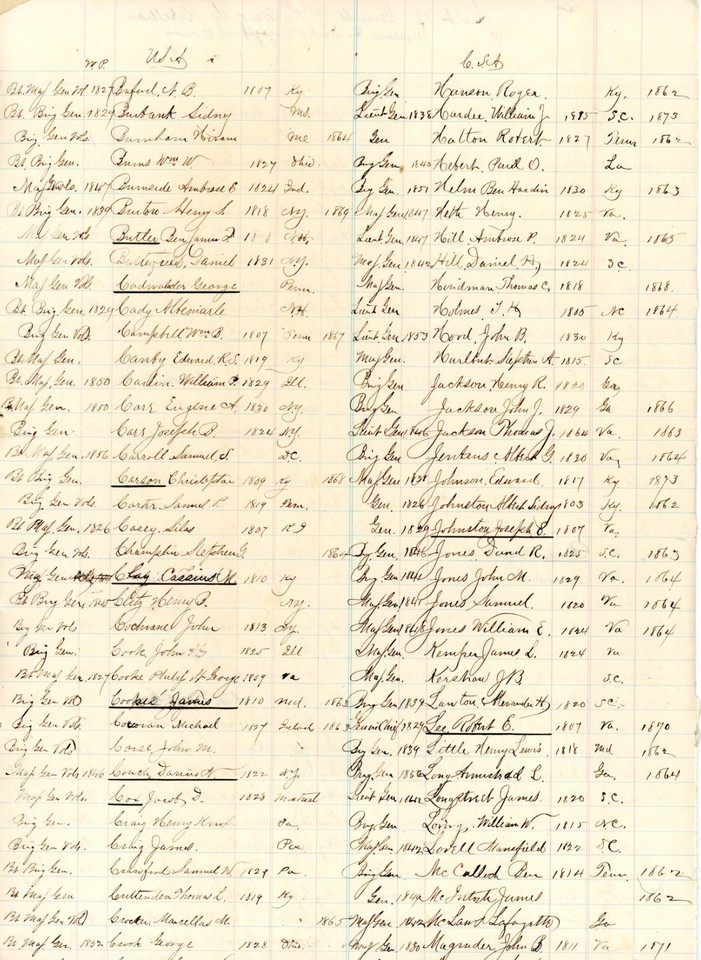 M.P. U.S.A C.S.A
Bt. Maj. Gen Vol 1827 Buford, N. B. 1807 Ky Brig Gen Hanson Roger. Ky. 1862
Bt. Brig Gen. 1829 Burbank Sidney Ms. Lieut Gen 1838 Hardee, William J. 1815 S.C. 1873
Brig. Gen Vols. Burnham Hiram Me 1864 Gen Hatton Robert 1827 Tenn 1862
Bt. Brig. Gen. Burns Wm W 1827 Ohio Brig Gen 1840 Hebert, Paul O. La
Maj Gen Vols. 1847 Burnside Ambrose E 1824 Ind. Brig Gen. 1851 Helm Ben Hardin 1830 Ky 1863
Bt Brig Gen. 1839 Burton Henry S. 1818 N.Y. 1869 Maj Gen 1847 Heth Henry. 1825 Va.
Maj Gen Vols Butler Benjamin F. N.H. Lieut. Gen 1847 Hill Ambrose P. 1824 Va. 1865
Maj Gen Vols. Butterfield, Daniel 1831 N.Y. Maj. Gen 1842 Hill, Daniel H, 1824 S.C.
Maj Gen Vols Cadwalader George Penn. Maj Gen Hindman Thomas C, 1818 1868.
Bt. Brig Gen, 1829 Cady Albemarle N.H. Lieut Gen Holmes, T. H. 1805 NC 1864
Brig Gen Vols. Campbell Wm B. 1807 Tenn 1867 Lieut Gen 1853 Hood, John B. 1830 Ky
Bt. Maj Gen. Canby Edward R.S. 1819 Ky Maj Gen. Hurlbut Stephen A. 1815 SC
Bt. Maj Gen. 1850 Carlin. William P. 1829 Ill. Brig Gen Jackson Henry R. Ga
Bt Maj Gen. 1850 Carr Eugene A. 1830 N.Y. Brig Gen Jackson John J. 1829 Ga 1866
Brig Gen Carr Joseph B. 1824 N.Y. Lieut Gen 1846 Jackson Thomas J. 1864 Va. 1863
Bt. Maj Gen. 1856 Carroll Samuel S. D.C. Brig Gen Jenkins Albert G. 1830 Va, 1864
Bt Brig Gen. Carson Christopher 1809 Ky 1868 Maj Gen 1838 Johnson, Edward 1817 Ky 1873
Brig Gen Vols. Carter Samuel P. 1819 Tenn. Gen. 1826 Johnston Albert Sidney 1803 Ky. 1862
Bt Maj Gen. 1826 Casey, Silas 1807 R I Gen. 1829 Johnston Joseph E. 1807 Va.
Brig Gen Vols. Champlin Stephen G. 1864 Brig. Gen, 1846 Jones David R. 1825 S.C. 1863
Maj Gen Clay Cassius M. 1810 Ky Brig Gen 1841 Jones John M. 1829 Va. 1864
Bt Brig Gen Clitz Henry B. N.Y. Maj Gen 1841 Jones Samuel. 1820 Va 1864
Brig Gen Vols Cochrane John 1813 N.Y. Maj Gen 1848 Jones William E. 1824 Va 1864
Brig Gen. Cook John 1825 Ill Maj Gen. Kemper James L. 1824 Va
Bt Maj Gen. 1827 Cooke Philip St. George 1809 Va Maj. Gen. Kershaw J B S.C.
Brig Gen Vol Cooper James 1810 Md. 1863 Brig Gen 1839 Lawton, Alexander H, 1820 S.C.
Brig Gen Vols. Corcoran Michael 1827 Ireland 1863 Lee Robert E. 1807 Va. 1870
Brig Gen Vols Corse John M. Brig Gen. 1839 Little Henry Lewis. 1818 Md 1862
Maj. Gen Vols 1846 Couch Darius N. 1822 N.Y. Brig Gen. 1850 Long Armistead L. Ga. 1864
Maj Gen Vols. Cox Jacob, D. 1828 Montreal Lieut Gen 1842 Longstreet James. 1820 S.C.
Brig Gen. Craig Henry Knox Pa. Brig Gen Loring, William W. 1815 N.C.
Brig Gen Vols. Craig James. Pa Maj Gen 1842 Lovell Mansfield 1822 S.C.
Bt Brig Gen. Crawford Samuel W. 1829 Pa. Brig Gen McCulloch Ben 1814 Tenn. 1862
Bt Maj Gen Crittenden Thomas L. 1819 Ky Gen. McIntosh James 1862
Bt Maj Gen Vol Crocker Marcellus M. 1865 Maj Gen 1842 McLaws Lafayette Ga
Bt Maj. Gen. 1852 Crook George 1828 Ohio. Maj Gen 1830 Magruder John B. 1811 Va 1871